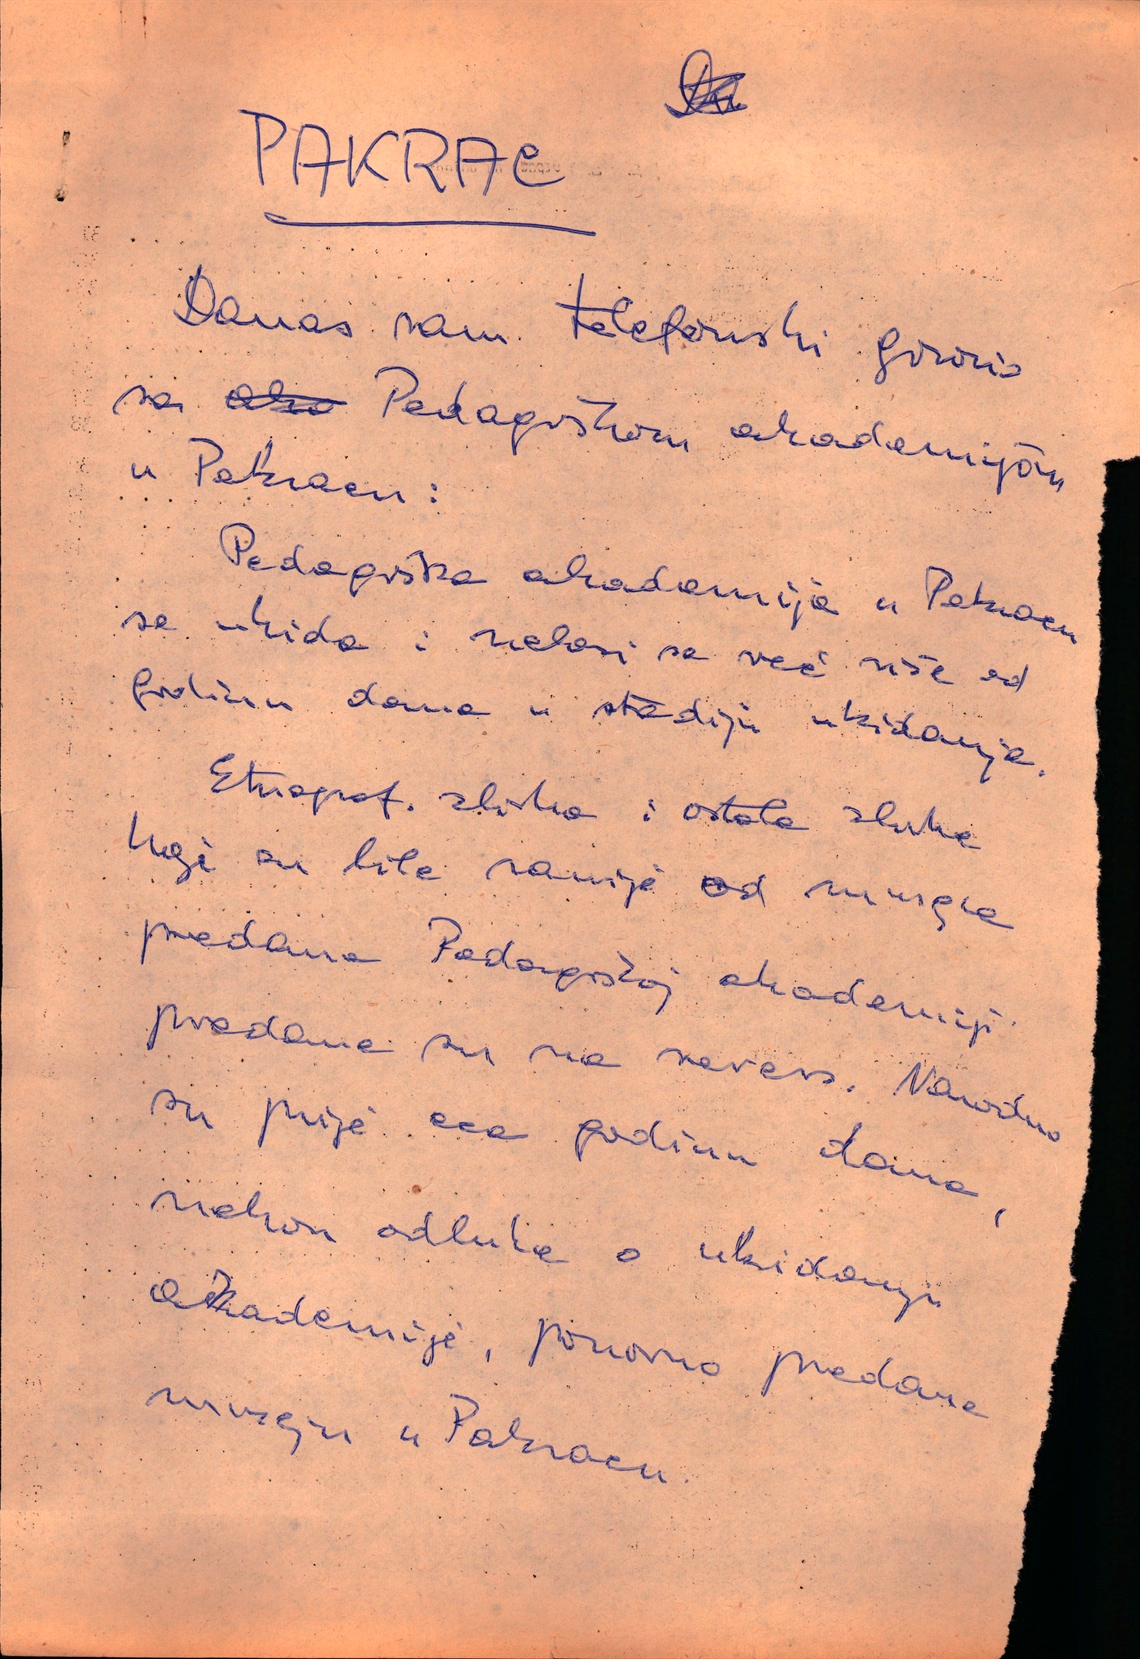 PAKRAC
Danas sam telefonski govorio
sa Pedagoškom akademijom
u Pakracu:
Pedagoška akademija u Pakracu
se ukida i nalazi se već više od
godinu dana u stadiju ukidanja.
Etnograf. zbirka i ostale zbirke
koje su bile ranije od muzeja
predane Pedagoškoj akademiji
predane su na revers. Navodno
su prije cca godinu dana,
nakon odluke o ukidanju
akademije, ponovno predane
muzeju u Pakracu.